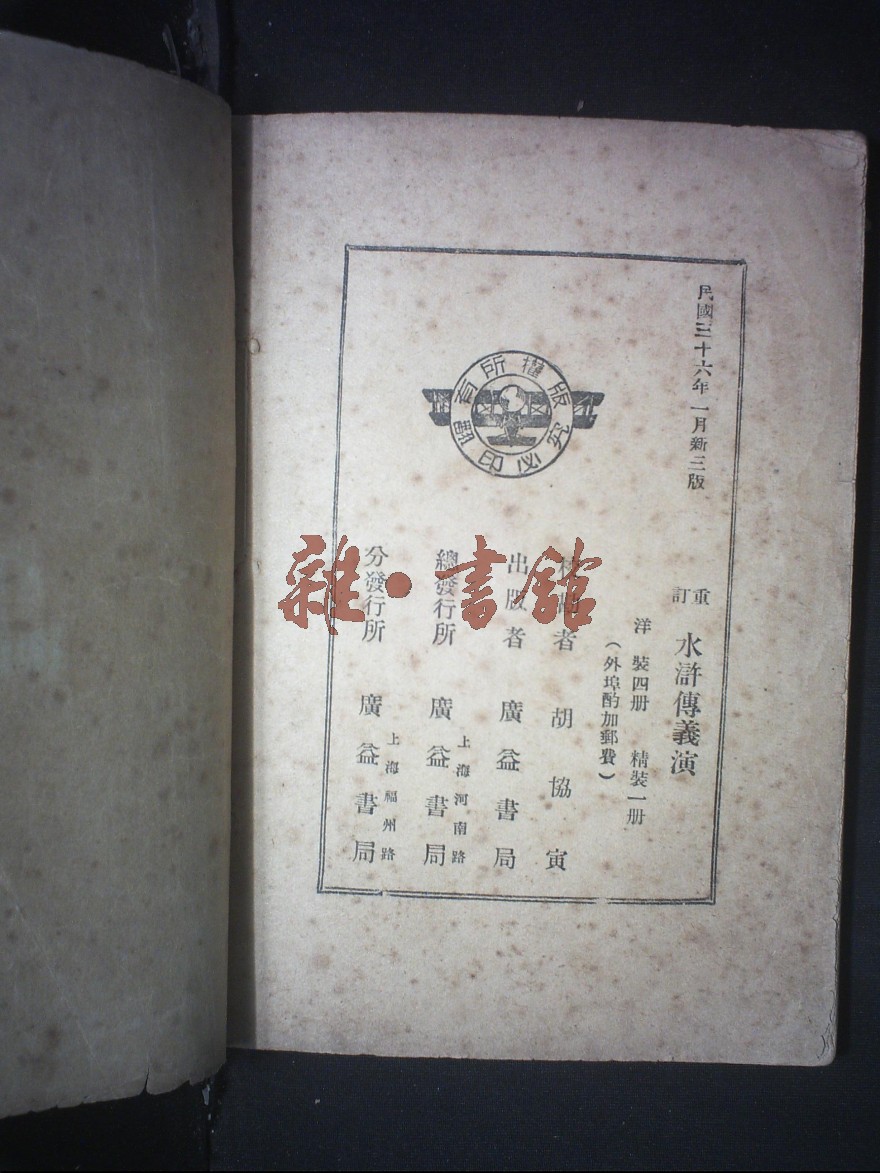 民國三十六年一月新三版
重訂 水滸傳義演
洋裝四册 精裝一册
(外埠酌加郵費)
校閱者 胡協寅
出版者 廣益書局
總發行所 上海河南路 廣益書局
分發行所 上海福州路 廣益書局
版權所有
翻印必究
雜·書館